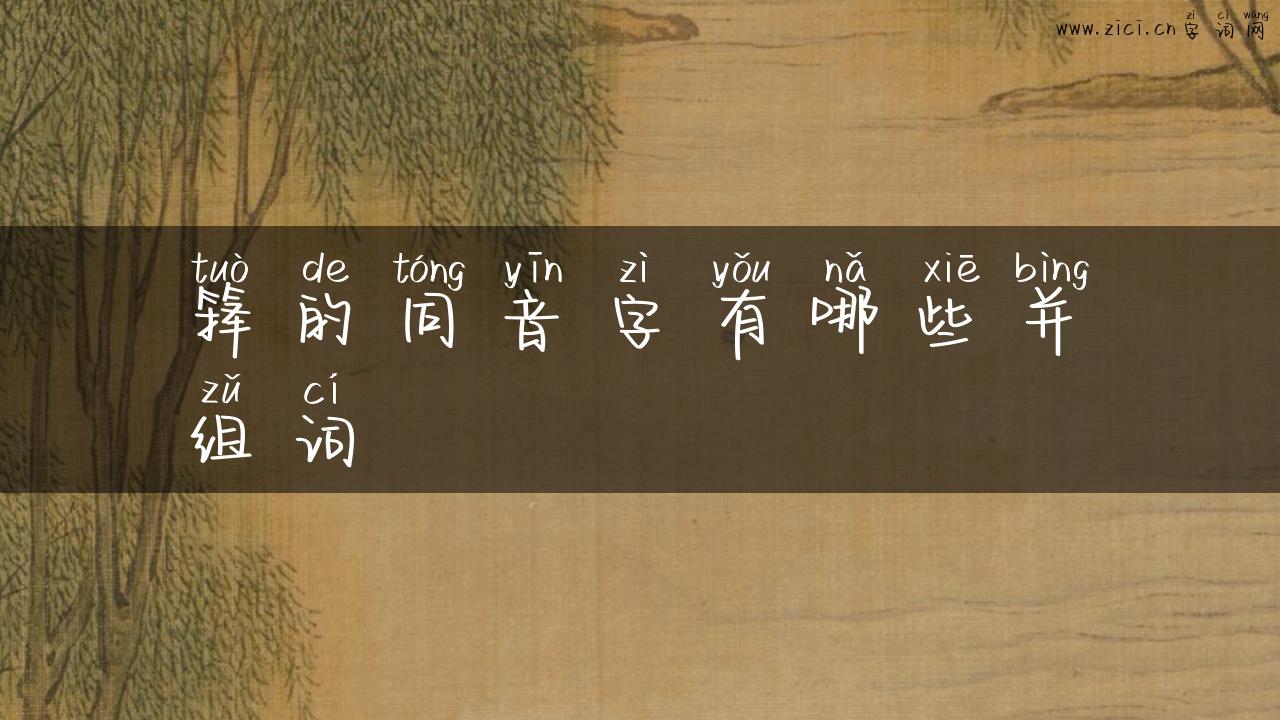 zì cí wǎng
www.zici.cn字词网
tuò de tóng yīn zì yǒu nǎ xiē bìng
箨的同音字有哪些并
zǔ cí
组词